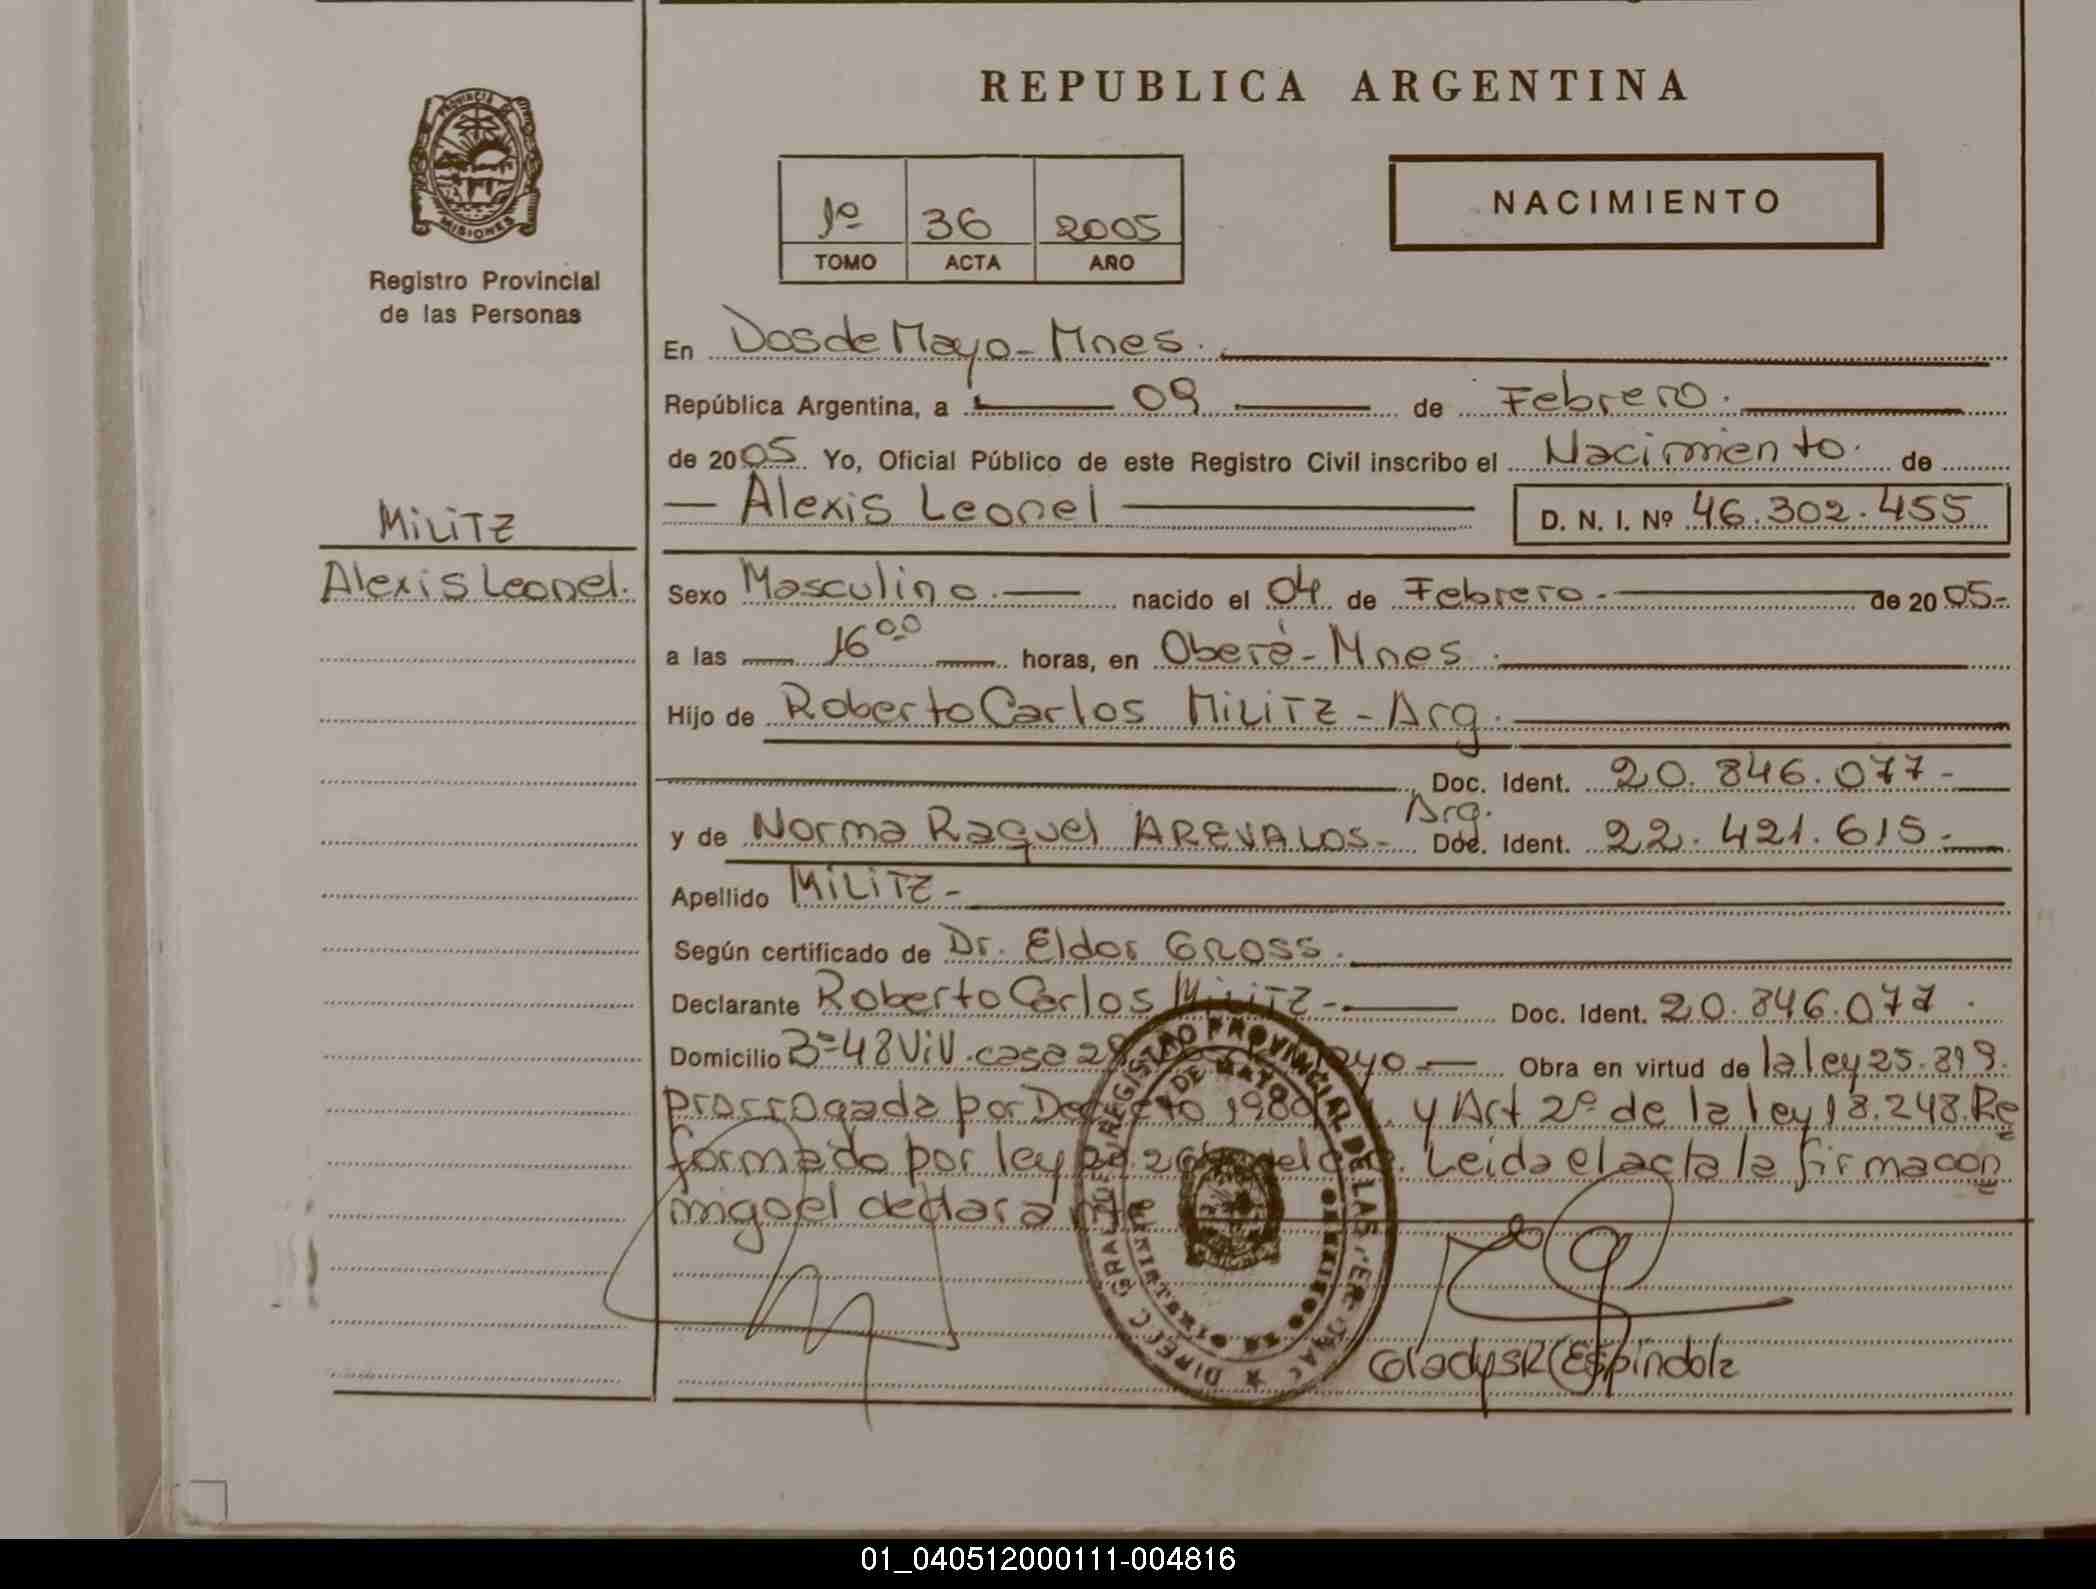 REPUBLICA ARGENTINA
PROVINCIA DE
MISIONES
Registro Provincial
de las Personas
1º 36 2005
TOMO ACTA AÑO
NACIMIENTO
En Dos de Mayo - Mnes.
República Argentina, a 09 de Febrero.
de 2005 Yo, Oficial Público de este Registro Civil inscribo el Nacimiento. de
Alexis Leonel D. N. I. Nº 46.302.455
MILITZ
Alexis Leonel.
Sexo Masculino. nacido el 04 de Febrero. de 2005.-
a las 16 00 horas, en Oberá - Mnes.
Hijo de Roberto Carlos MILITZ - Arg.
Doc. Ident. 20.846.077 -
y de Norma Raquel AREVALOS - Arg. Doc. Ident. 22.421.615.-
Apellido MILITZ -
Según certificado de Dr. Eldor GROSS.
Declarante Roberto Carlos MILITZ - Doc. Ident. 20.846.077.
Domicilio Bº 48 Viv. casa Mayo - Obra en virtud de la ley 25.819.
prorrogada por Decreto y Art 2º de la ley 18.248. Re
formado por ley Leida el acta la firma con
migo el declarante
REGISTRO PROVINCIAL DE LAS
DE MAYO
MISIONES
DIRECC GRAL DE
Gladys R Espindola
01_040512000111-004816